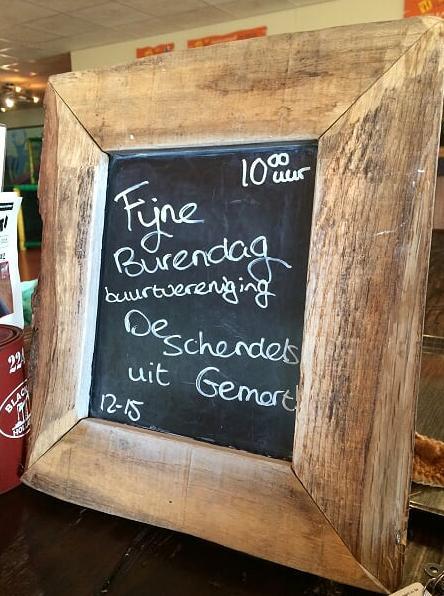 10⁰⁰ uur
Fijne
Burendag
buurtvereniging
De
Schendels
uit Gemert!
12-15
22
BLAC